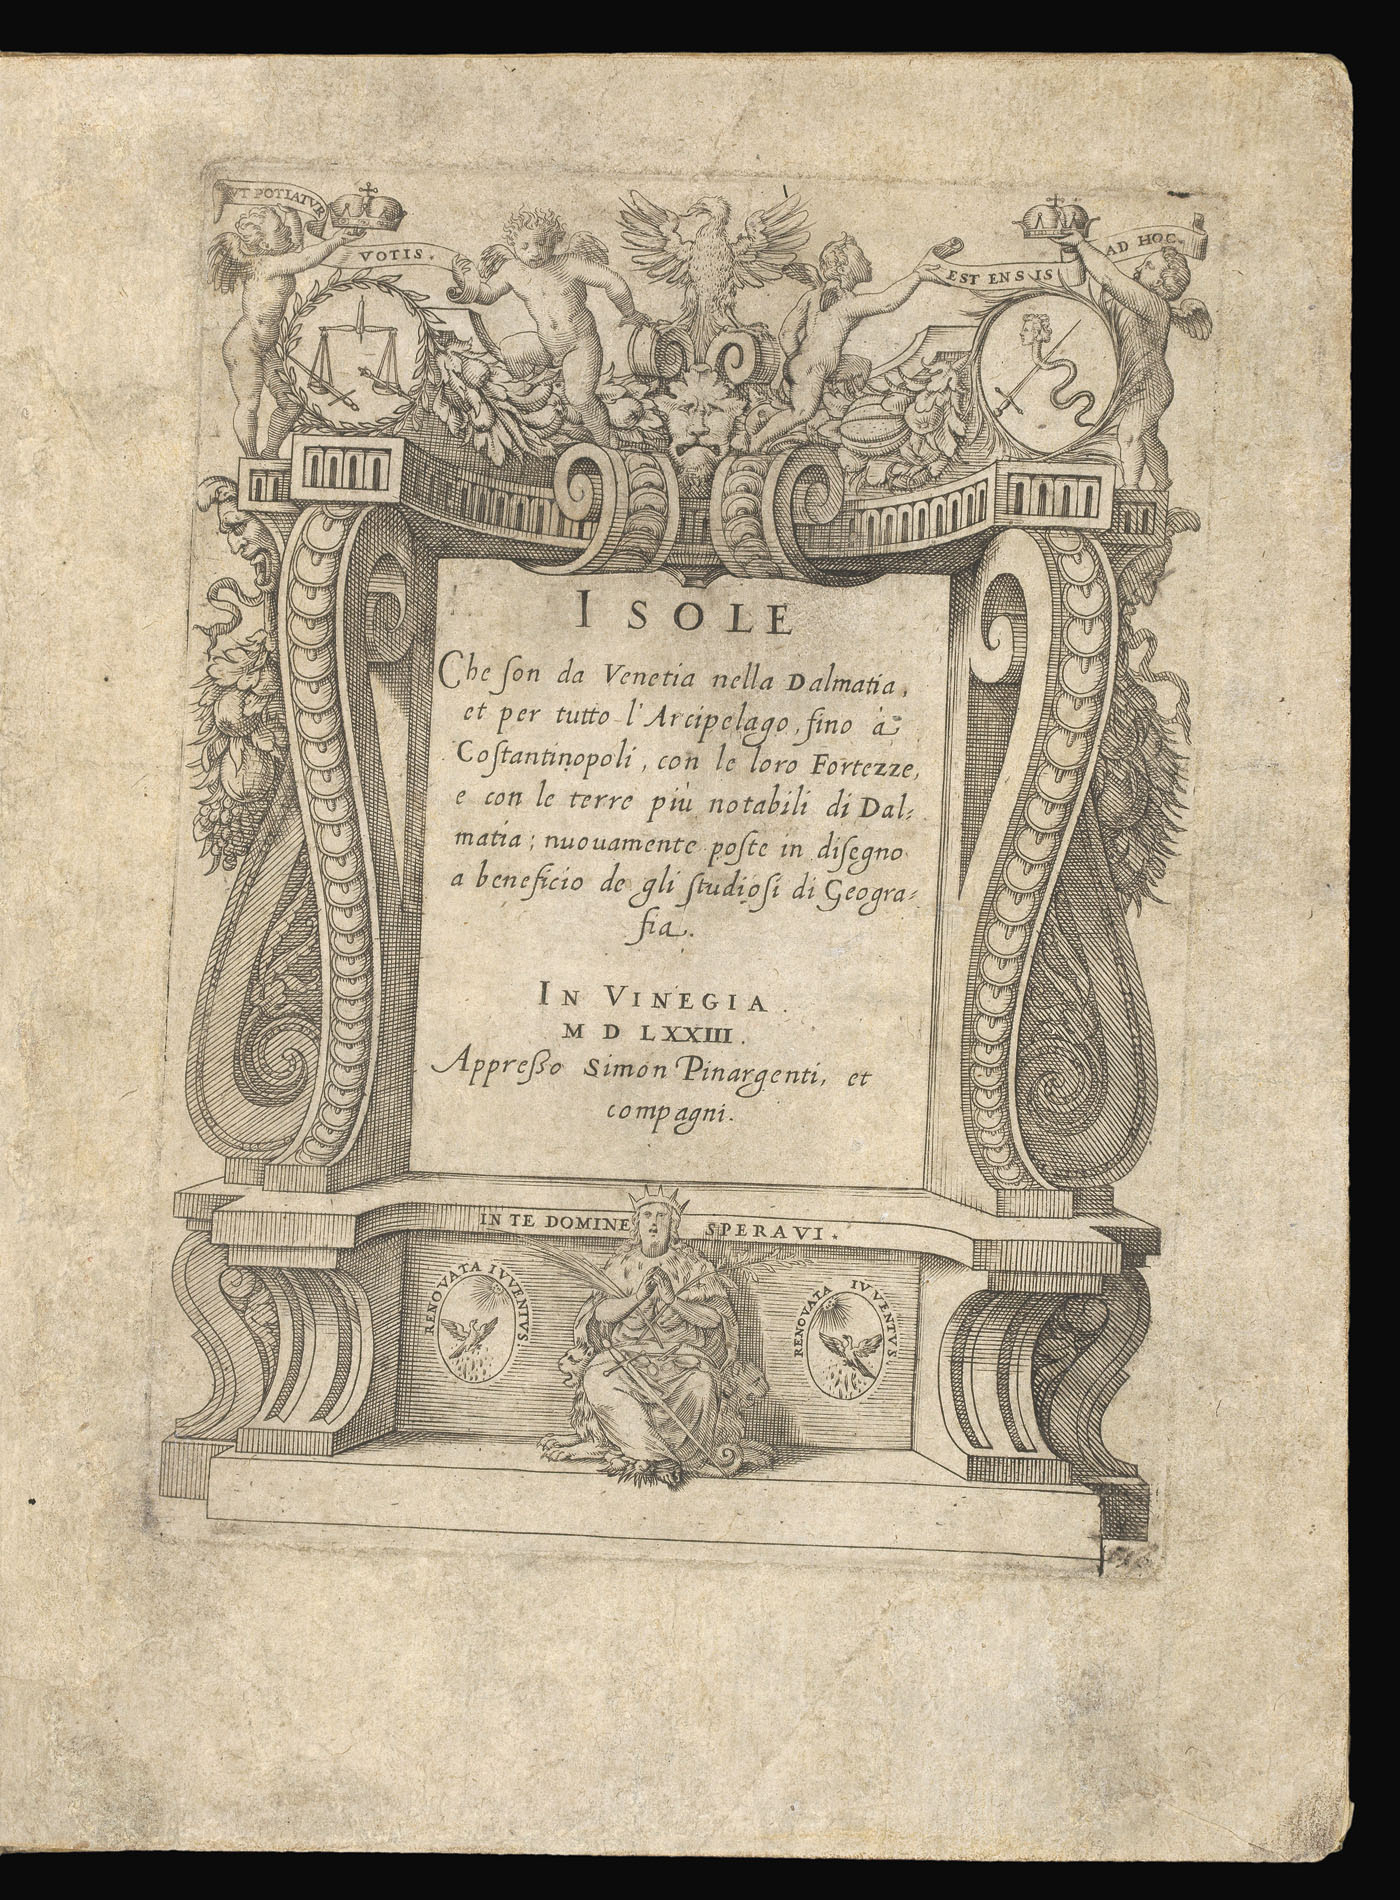 UT POTIATVR
VOTIS.
EST ENSIS
AD HOC.
ISOLE
Che ſon da Venetia nella Dalmatia,
et per tutto l'Arcipelago, fino à
Coſtantinopoli, con le loro Fortezze,
e con le terre più notabili di Dal⸗
matia; nuouamente poſte in diſegno
a beneficio de gli ſtudioſi di Geogra⸗
fia.
IN VINEGIA.
M D LXXIII.
Appreſſo Simon Pinargenti, et
compagni.
IN TE DOMINE SPERAVI.
RENOVATA IVVENTVS.
RENOVATA IVVENTVS.